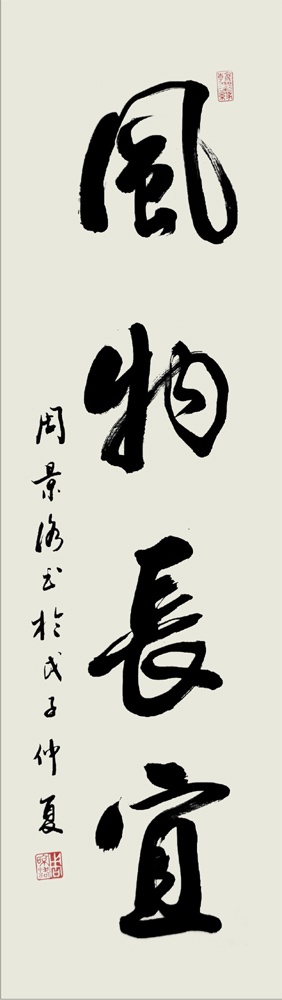 風物長宜
周景洛书於戊子仲夏